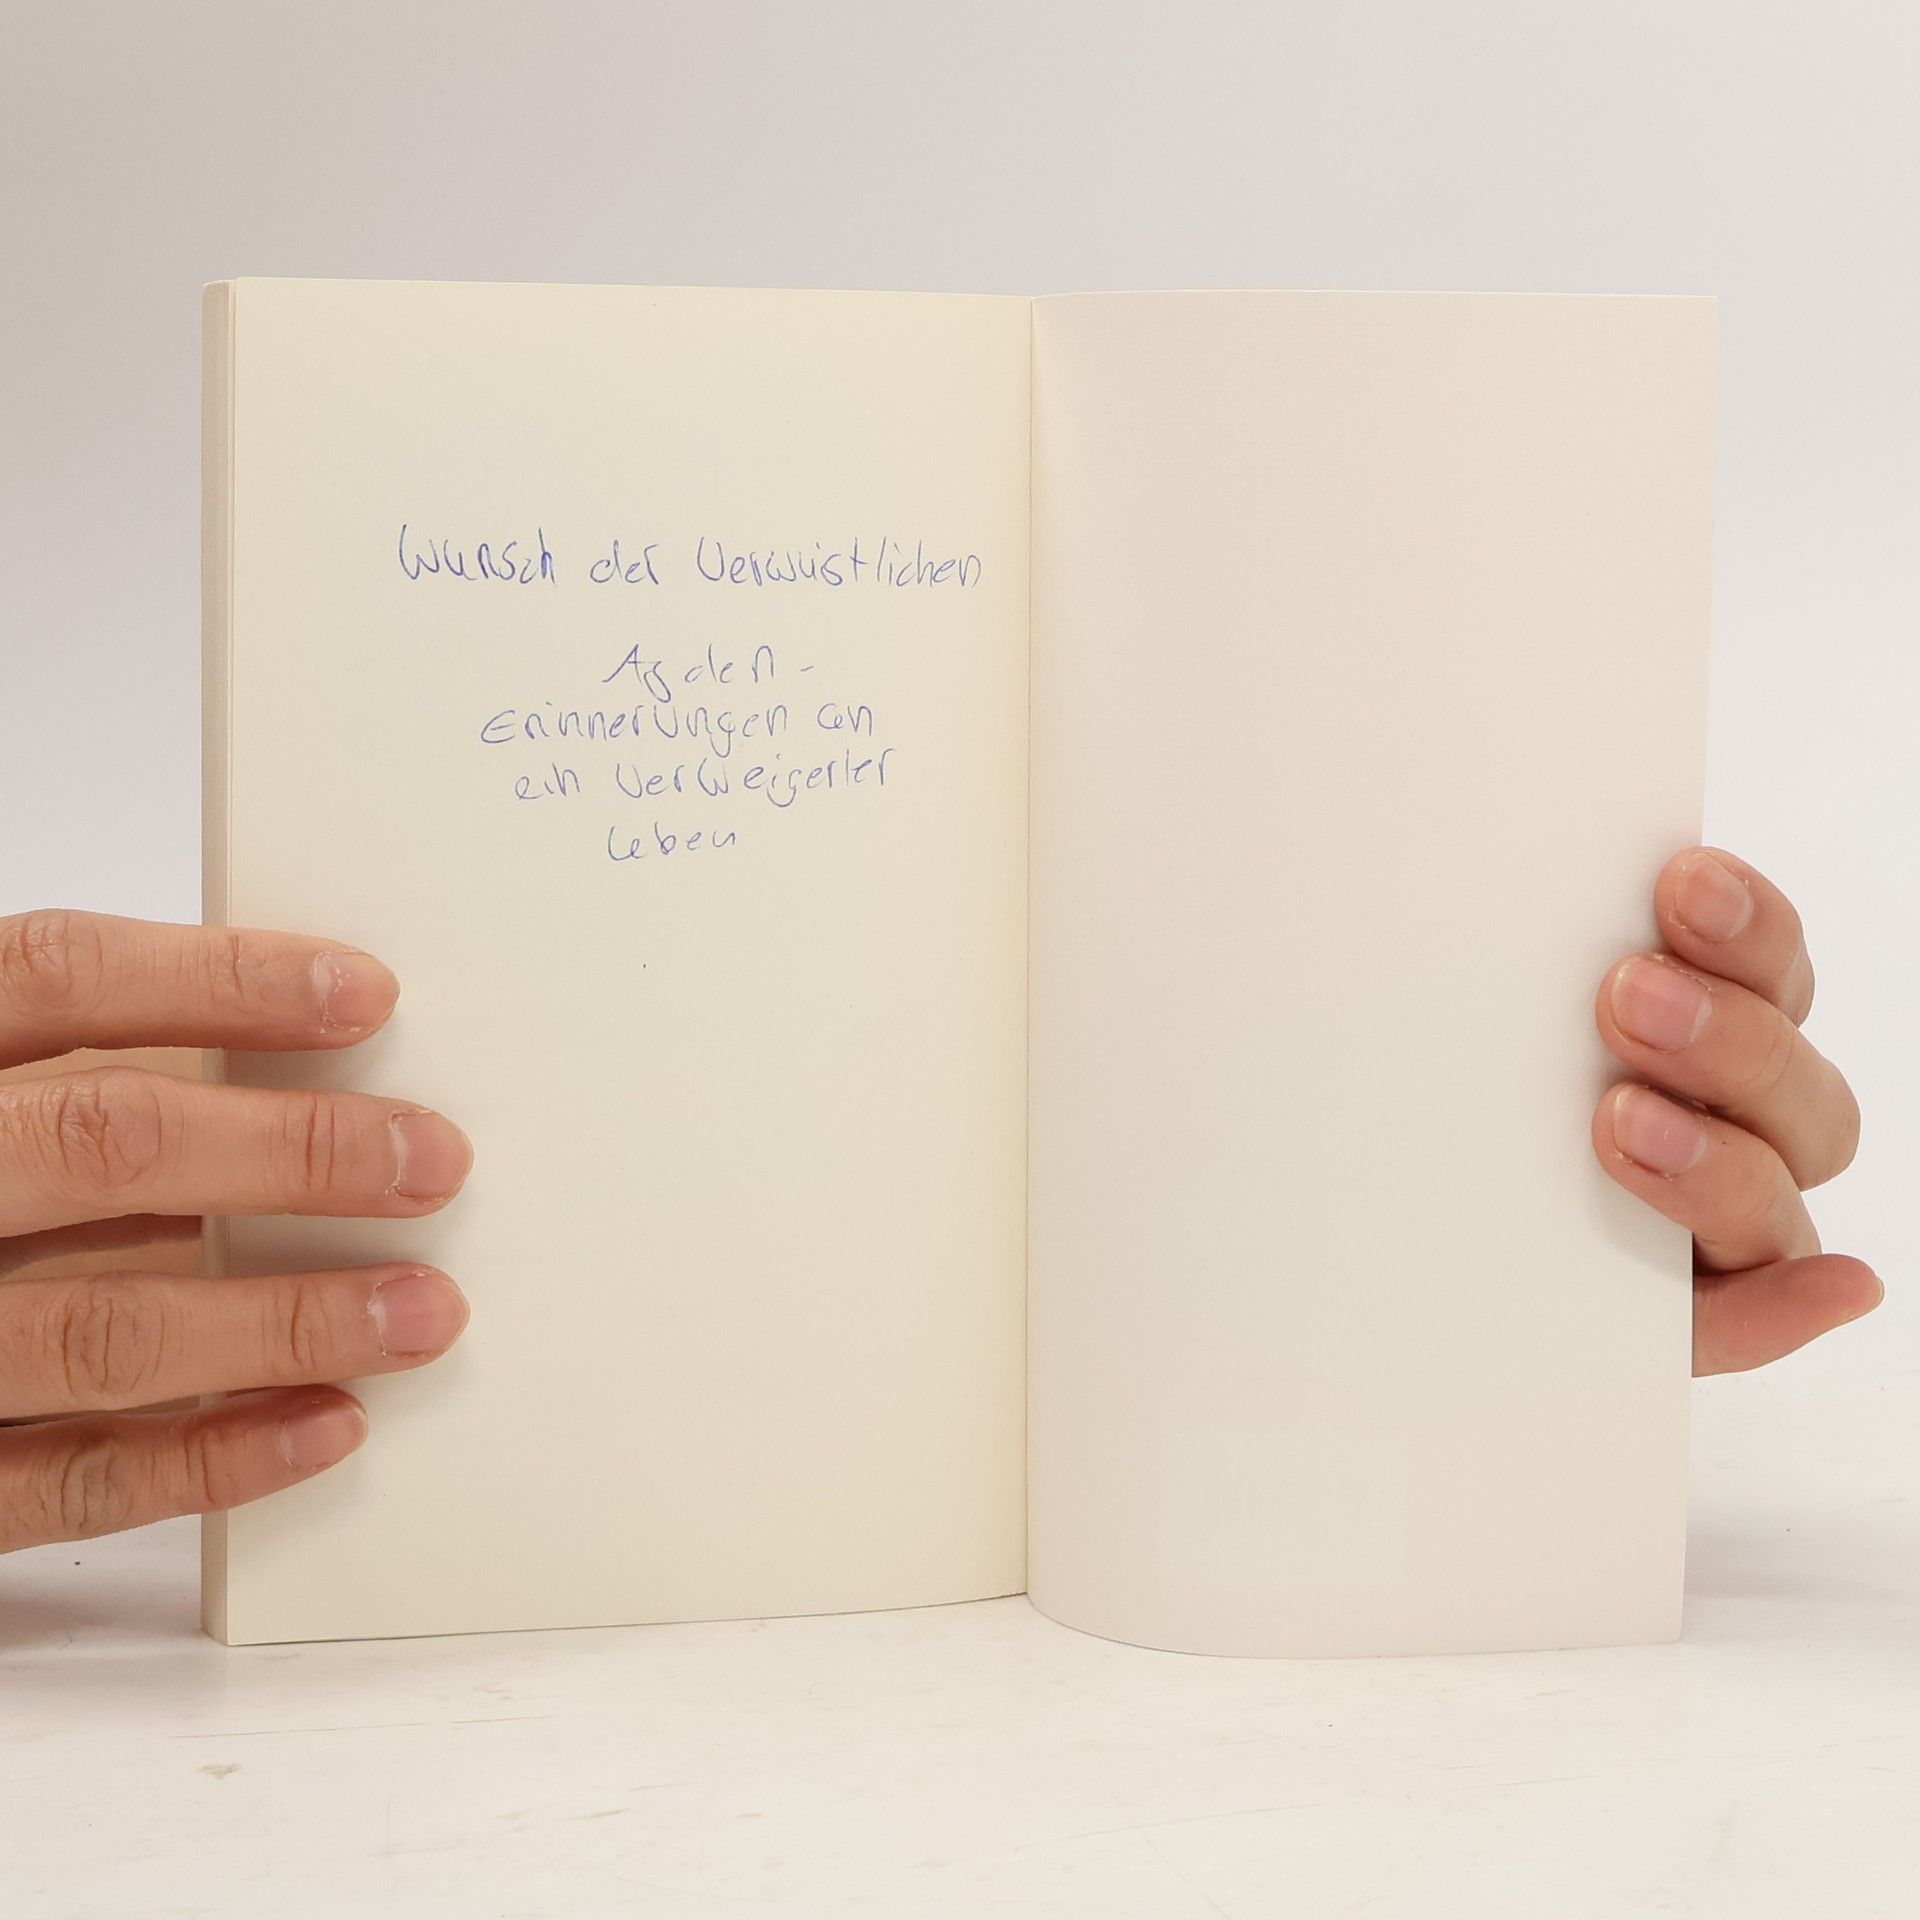 Wunsch der Verwüstlichen
Agden -
Erinnerungen an
ein VerWeigerter
Leben